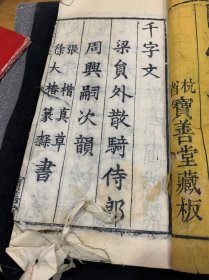 杭省寶善堂藏板
千字文
梁負外散騎侍郎
周興嗣次韻
張楷真草
徐大椿篆隸
書